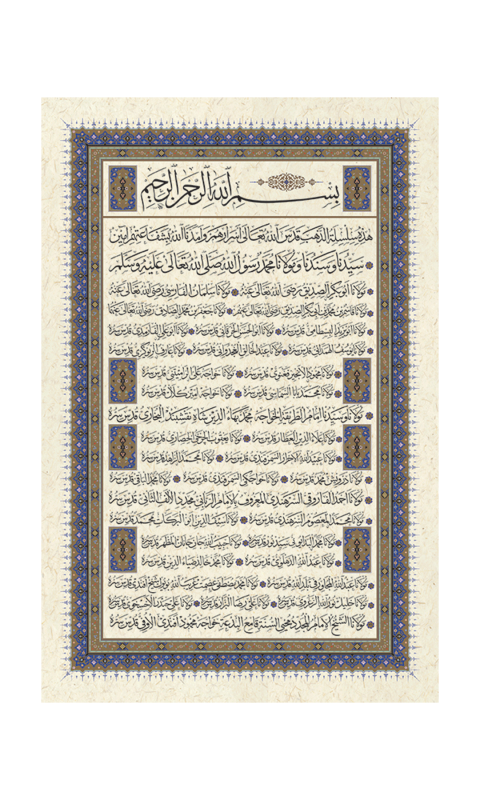 بسم الله الرحمن الرحيم
هذه سلسلة الذهب قدس الله تعالى اسرارهم وامدنا الله بشفاعتهم امين
سيدنا وسندنا ومولانا محمد رسول الله صلى الله تعالى عليه وسلم
مولانا ابو بكر الصديق رضي الله تعالى عنه مولانا سلمان الفارسي رضي الله تعالى عنه
مولانا قاسم بن محمد بن ابو بكر الصديق رضي الله تعالى عنهم مولانا جعفر بن محمد الصادق رضي الله تعالى عنهما
مولانا ابو يزيد البسطامي قدس سره مولانا ابو الحسن الخرقاني قدس سره مولانا ابو علي الفارمدي قدس سره
مولانا يوسف الهمداني قدس سره مولانا عبد الخالق الغجدواني قدس سره مولانا عارف الريوكري قدس سره
مولانا محمود الانجير فغنوي قدس سره مولانا خواجه علي الراميتني قدس سره
مولانا محمد بابا السماسي قدس سره مولانا خواجه امير كلال قدس سره
مولانا وسيدنا امام الطريقة الخواجه محمد بهاء الدين شاه نقشبند البخاري قدس سره
مولانا علاء الدين العطار قدس سره مولانا يعقوب الجرخي الحصاري قدس سره
مولانا عبيد الله الاحرار السمرقندي قدس سره مولانا محمد الزاهد قدس سره
مولانا درويش محمد قدس سره مولانا خواجكي السمرقندي قدس سره مولانا محمد الباقي قدس سره
مولانا احمد الفاروقي السرهندي المعروف بالامام الرباني مجدد الالف الثاني قدس سره
مولانا محمد المعصوم السرهندي قدس سره مولانا سيف الدين قدس سره
مولانا محمد قدس سره مولانا حبيب الله جان جانان المظهر قدس سره
مولانا عبد الله الدهلوي قدس سره مولانا محمد خالد ضياء الدين قدس سره
مولانا عبد الله قدس سره مولانا مصطفى عصمت غريب الله قدس سره
مولانا خليل نور الله قدس سره مولانا علي رضا البزاز قدس سره مولانا علي حيدر الاخسخوي قدس سره
مولانا الشيخ الامام المجدد محيي السنة قامع البدعة خواجه محمود افندي الاوفي قدس سره